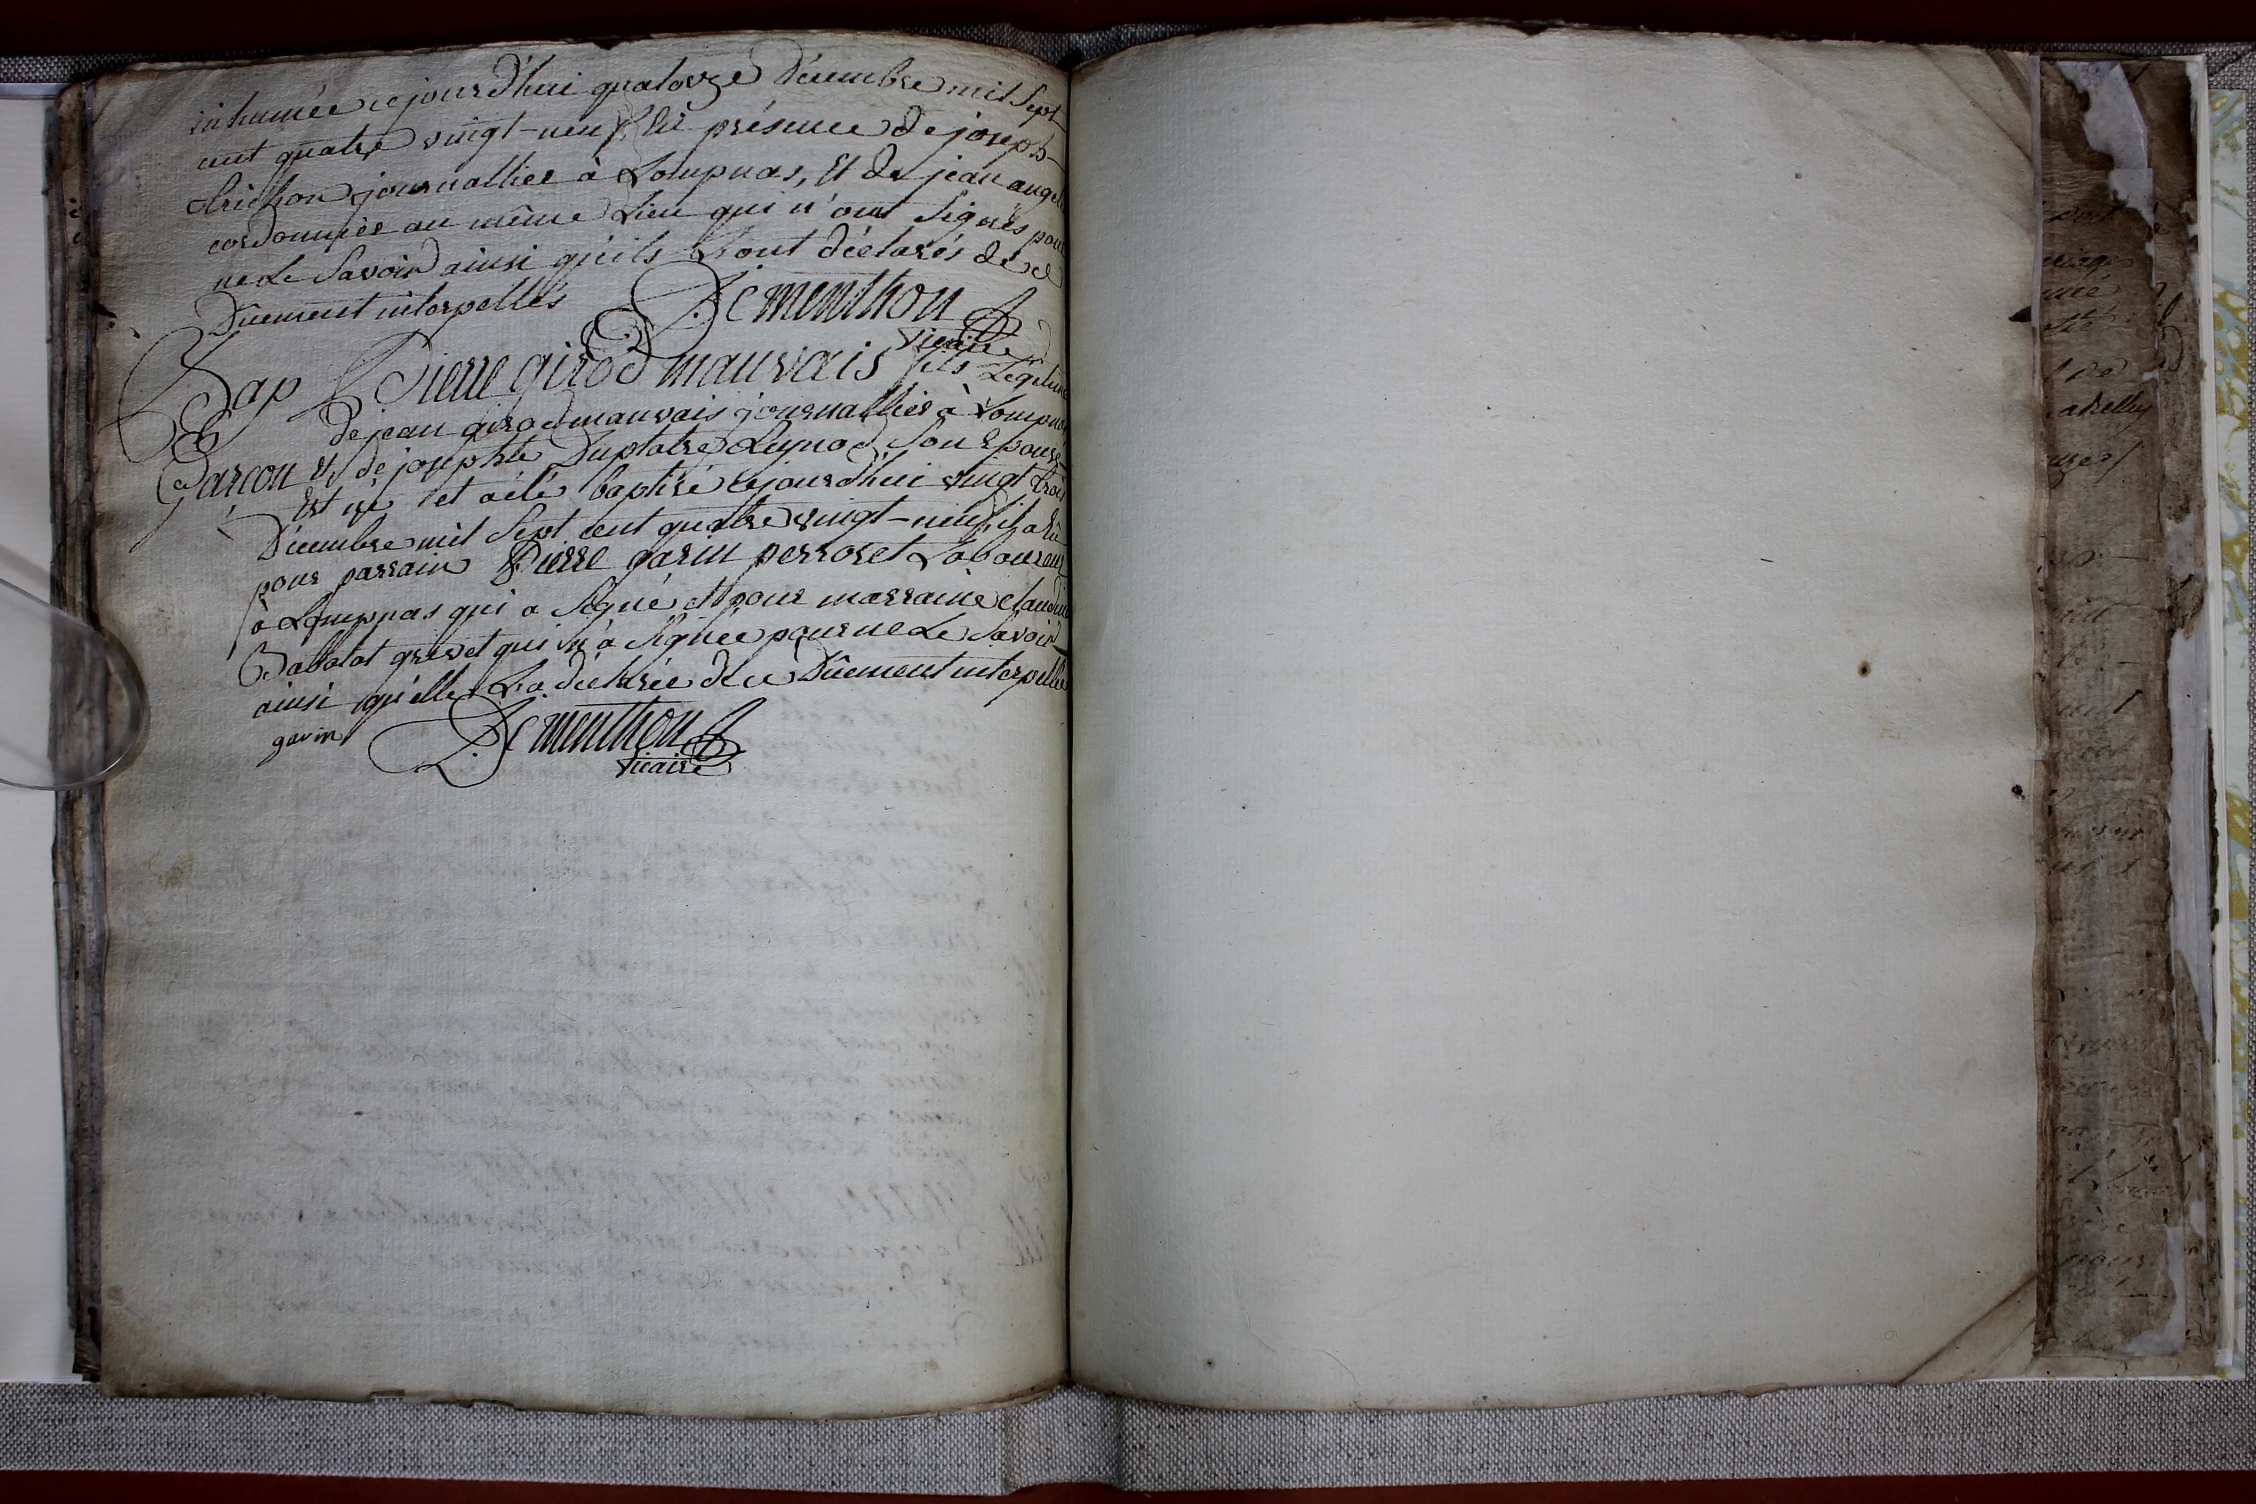 inhumée cejourd'hui quatorze Décembre mil Sept
cent quatre vingt-neuf En présence de joseph
Brichon journallier à Lompnas, Et de jean ange
cordonnier au même Lieu qui n'ont Signés pour
ne Le Savoir ainsi qu'ils L'ont déclarés de ce
Dûement interpellés Dementhon
vicaire
Bap Pierre girod mauvais fils Légitime
de jean girod mauvais journallier à Lompnas
Garçon Et de josephte Duplatre Son Epouse
Est né et a été baptisé cejourd'hui vingt trois
Décembre mil Sept cent quatre vingt-neuf, il a Eu
pour parrain Pierre garin perroset Laboureur
à Lompnas qui a Signé Et pour marraine claudine
Babolat grivet qui n'a Signée pour ne Le Savoir
ainsi qu'elle L'a déclarée de ce Dûement interpellée
garin Dementhon
vicaire